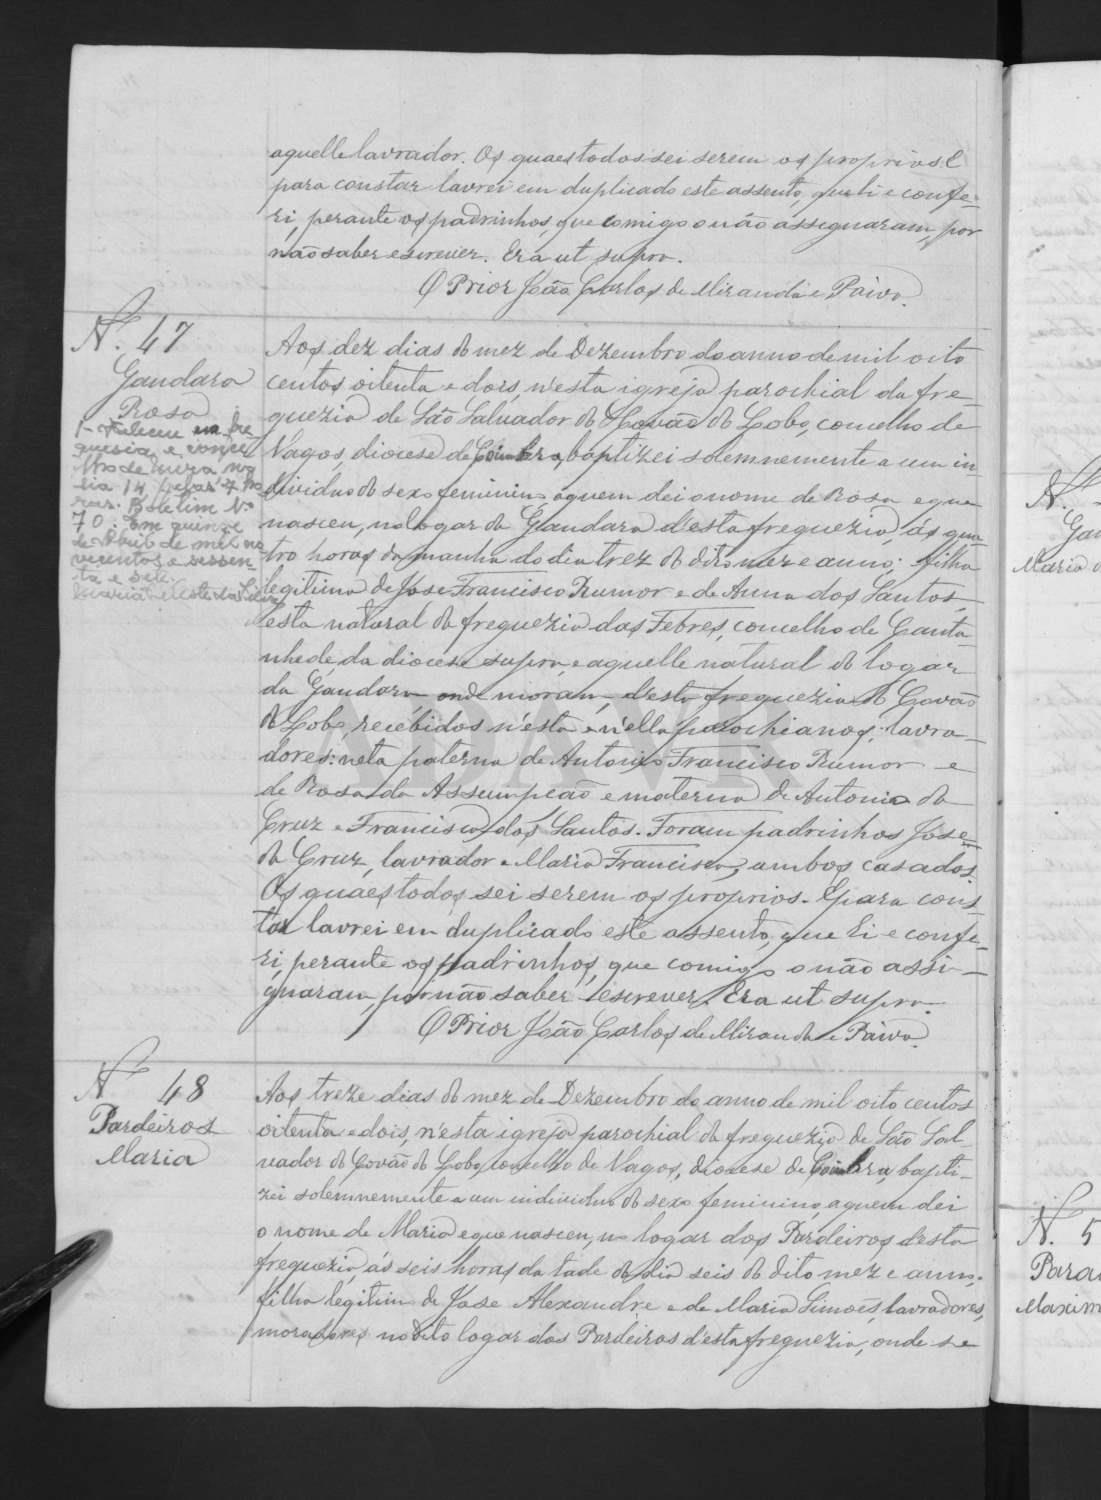 aquelle lavrador. Os quaes todos sei serem os proprios. E
para constar lavrei em duplicado este assento, que li e confe-
ri, perante os padrinhos, que comigo o não assignaram, por
não saber escrever. Era ut supra.
O Prior João Carlos de Miranda e Paiva.
N. 47
Gandara
Rosa
1- Faleceu na fre-
guesia e conce-
lho de
dia 14
Boletim Nº
70. Em quinze
de Abril de mil no-
vecentos e sessen-
ta e sete.
Aos dez dias do mez de Dezembro do anno de mil oito
centos oitenta e dois, n'esta igreja parochial da fre-
guezia de São Salvador do Covão do Lobo, concelho de
Vagos, diocese de Coimbra, baptizei solemnemente a um in-
dividuo do sexo feminino a quem dei o nome de Rosa e que
nasceu, no logar da Gandara d'esta freguezia, ás qua-
tro horas da manhã do dia trez do dito mez e anno; filha
legitima de Jose Francisco Rumor e de Anna dos Santos,
esta natural da freguezia das Febres, concelho de Canta-
nhede, da diocese supra, e aquelle natural do logar
da Gandara onde moram, d'esta freguezia do Covão
do Lobo, recebidos n'esta e n'ella parochianos; lavra-
dores: neta paterna de Antonio Francisco Rumor e
de Rosa da Assumpção e materna de Antonio da
Cruz e Francisca dos Santos. Foram padrinhos Jose
da Cruz, lavrador e Maria Francisca, ambos casados.
Os quaes todos sei serem os proprios. E para cons-
tar lavrei em duplicado este assento, que li e confe-
ri, perante os padrinhos, que comigo o não assi-
gnaram, por não saber escrever. Era ut supra.
O Prior João Carlos de Miranda e Paiva.
N 48
Pardeiros
Maria
Aos treze dias do mez de Dezembro do anno de mil oito centos
oitenta e dois, n'esta igreja parochial da freguezia de São Sal-
vador do Covão do Lobo, concelho de Vagos, diocese de Coimbra, bapti-
zei solemnemente a um individuo do sexo feminino, a quem dei
o nome de Maria e que nasceu, no logar dos Pardeiros d'esta
freguezia, ás seis horas da tarde do dia seis do dito mez e anno,
filha legitima de Jose Alexandre e de Maria Simões, lavradores,
moradores no dito logar dos Pardeiros d'esta freguezia, onde se
N.
Gan
Maria
N. 5
Para
Maxim
ADAVR